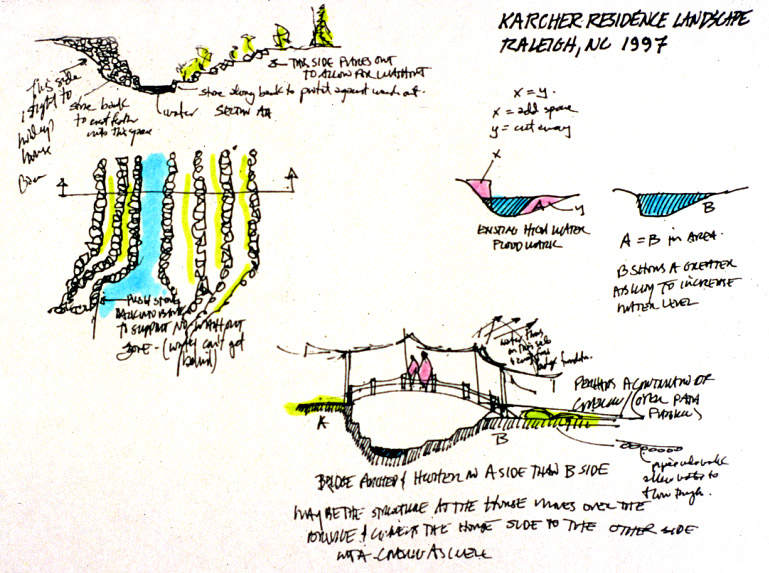 KARCHER RESIDENCE LANDSCAPE
RALEIGH, NC 1997
THIS SIDE FLARES OUT
TO ALLOW FOR WASHOUT
stone along bank to protect against wash out.
This side
is tight to
hold up
house
stone bank
to
into this space
water
SECTION AA
x = y.
x = add space
y = cut away
x
A
y
B
EXISTING HIGH WATER
FLOOD MARK
A = B in AREA.
B SHOWS A GREATER
ABILITY TO INCREASE
WATER LEVEL
PUSH STONE
BACK INTO BANK
TO SUPPORT NO WASHOUT
ZONE - (water can't get
behind)
water flows
on this side
bridge
PERHAPS A CONTINUATION OF
(OVER PATH
A
B
allow water to
flow through.
BRIDGE ARCHED & HIGHER ON A SIDE THAN B SIDE
MAYBE THE STRUCTURE AT THE HOUSE MOVES OVER THE
BRIDGE & CONNECTS THE HOUSE SIDE TO THE OTHER SIDE
AS WELL